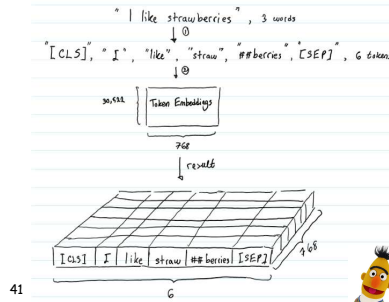 " I like strawberries " , 3 words
①
"[CLS]", " I ", "like", "straw", "##berries", "[SEP]", 6 token
②
30,522
Token Embeddings
768
result
[CLS] I like straw ##berries [SEP]
768
6
41